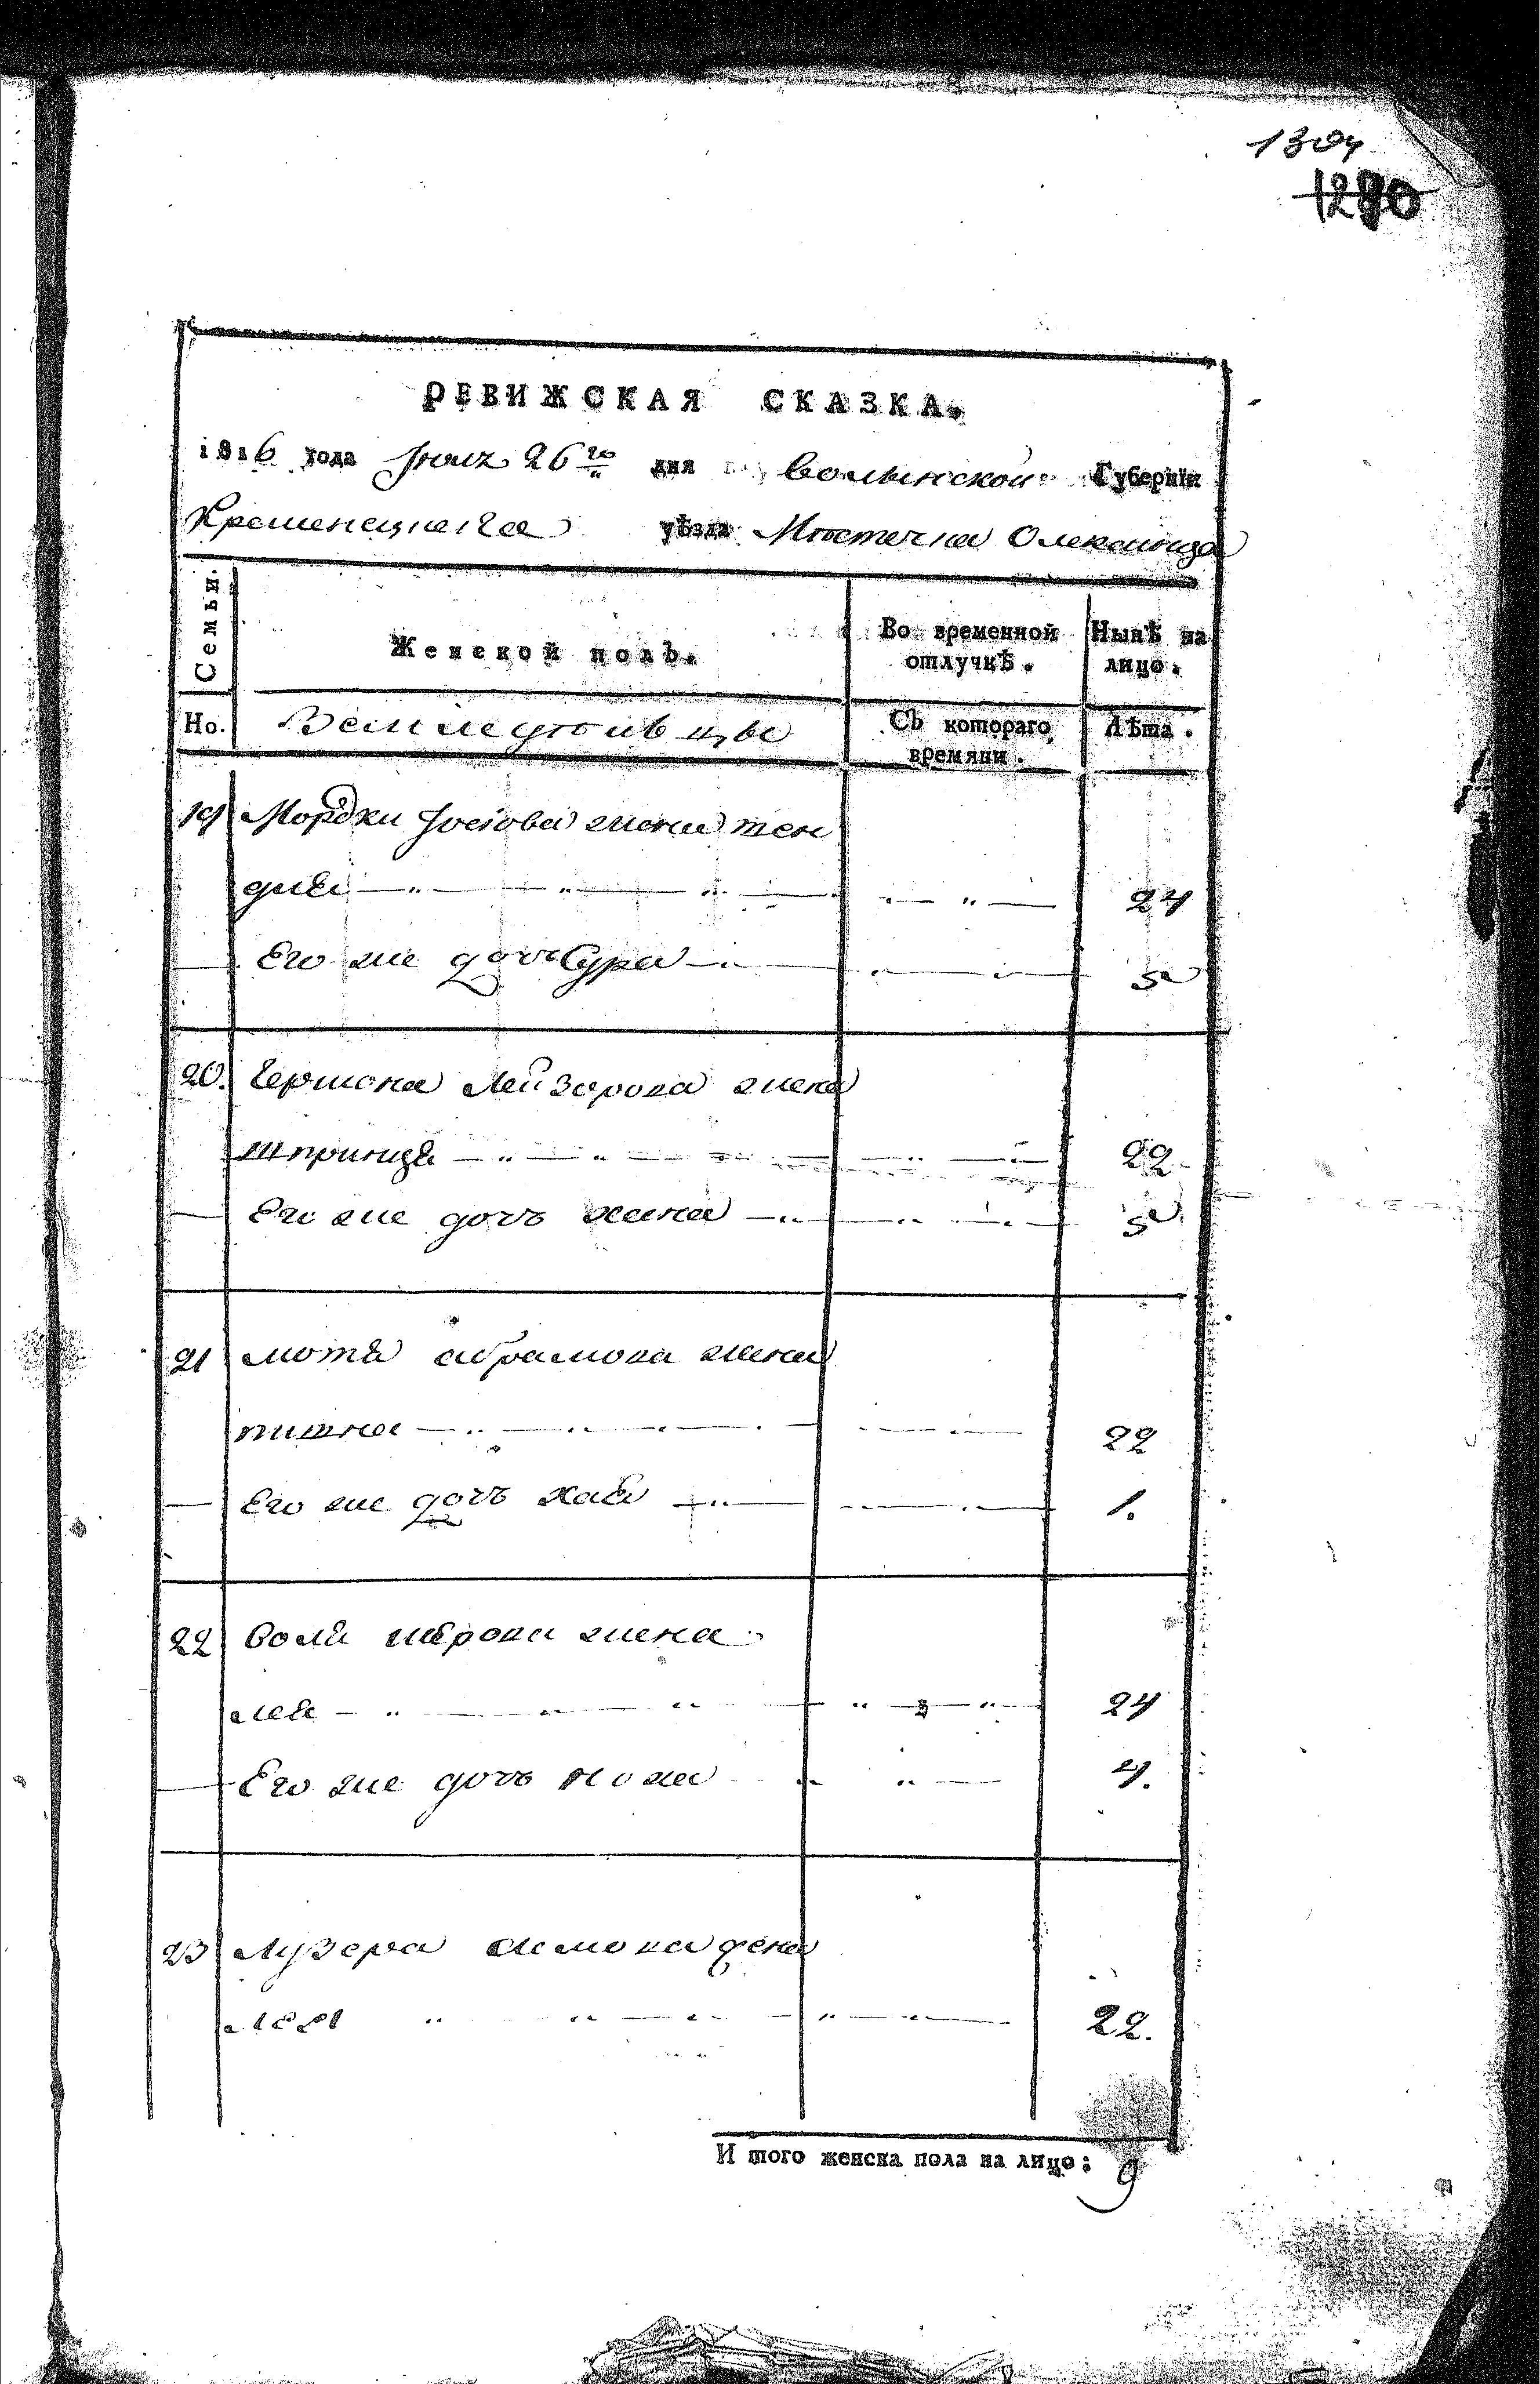 1304
1290
РЕВИЖСКАЯ СКАЗКА.
1816 года Июня 26го дня Волынской Губернїи
Кременецкаго уѣзда Мѣстечка Олексинца
Семьи.
Женской полъ.
Во временной отлучкѣ.
Ныпѣ на лицо.
Но.
Съ котораго времяни.
Лѣта.
19 Мордки Іосіова жена тен
для 24
Его же дочь Сура 5
20. Гершона Лейзорова жена
Шпринця 22
Его же дочь хана 5
21 мотя абрамова жена
22
Его же дочь хая 1.
22 жена
лея 24
Его же дочь 4.
23 Лузера жена
лея 22.
И того женска пола на лицо: 9